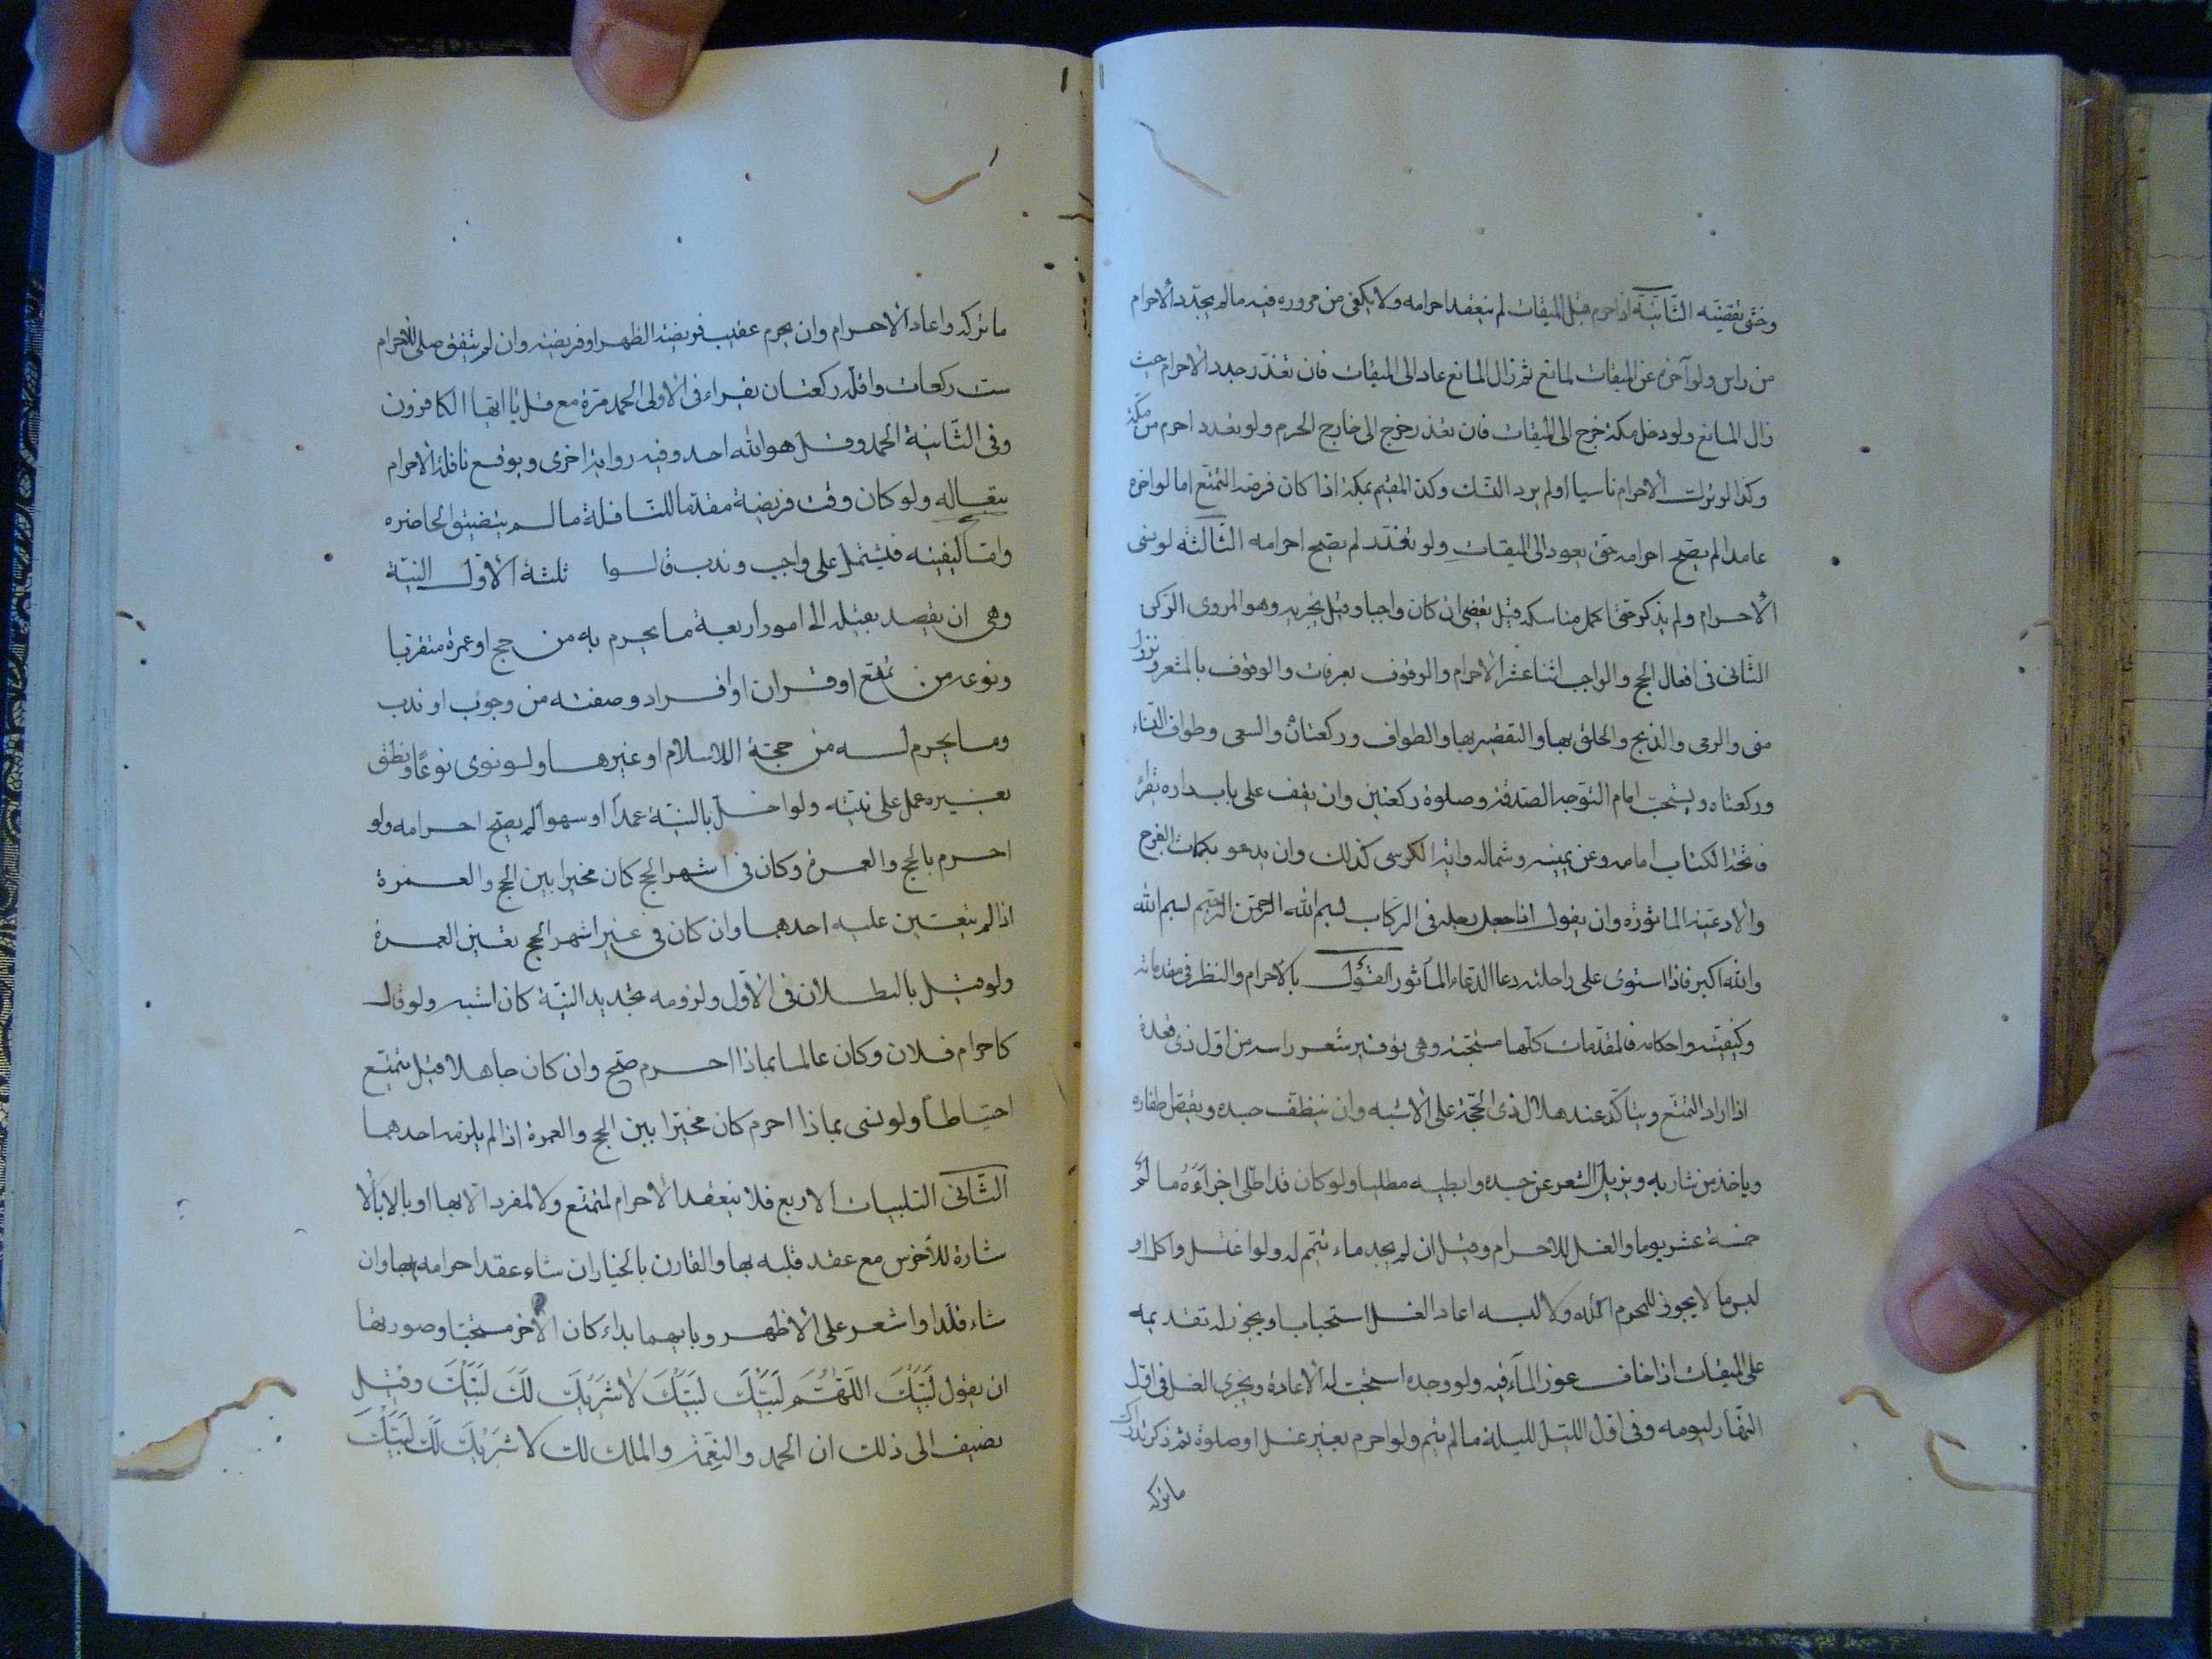 وحتى تقضيته الثانية اذا احرم قبل الميقات لم ينعقد احرامه ولا يكفى من مروره فيه مالم يجدد الاحرام
من راس ولو آخره عن الميقات لمانع ثم زال المانع عاد الى الميقات فان تعذر جدد الاحرام حيث
زال المانع ولو دخل مكة خرج الى الميقات فان تعذر خرج الى خارج الحرم ولو تعذر احرم من مكة
وكذا لو ترك الاحرام ناسيا او لم يرد النسك وكذا المقيم بمكة اذا كان فرضه التمتع اما لو اخره
عامدا لم يصح احرامه حتى يعود الى الميقات ولو تعذر لم يصح احرامه الثالثة لو نسى
الاحرام ولم يذكر حتى اكمل مناسكه قيل يقضى ان كان واجبا وقيل يجزيه وهو المروى الركن
الثانى فى افعال الحج والواجب اثنا عشر الاحرام والوقوف بعرفات والوقوف بالمشعر ونزول
منى والرمى والذبح والحلق بها والتقصير بها والطواف وركعتاه والسعى وطواف النساء
وركعتاه ويستحب امام التوجه الصدقة وصلوة ركعتين وان يقف على باب داره يقرا
فاتحة الكتاب امامه وعن يمينه وشماله واية الكرسى كذلك وان يدعو بكلمات الفرج
والادعية الماثورة وان يقول اذا جعل رجله فى الركاب بسم الله الرحمن الرحيم بسم الله
والله اكبر فاذا استوى على راحلته دعا الدعاء المأثور القول بالاحرام والنظر فى مقدماته
وكيفيته واحكامه فالمقدمات كلها مستحبة وهى توفير شعر راسه من اول ذى قعدة
اذا اراد التمتع ويتاكد عند هلال ذى الحجة على الاشبه وان ينظف جسده ويقص اظفاره
وياخذ من شاربه ويزيل الشعر عن جسده وابطيه مطليا ولو كان قد اطلى اجزاءه ما لم
خمسة عشر يوما والغسل للاحرام وقيل ان لم يجد ماء تيمم له ولو اغتسل واكل او
لبس ما لا يجوز للمحرم اكله ولا لبسه اعاد الغسل استحبابا ويجوز له تقديمه
على الميقات اذا خاف عوز المآء فيه ولو وجده استحب له الاعادة ويجزى الغسل فى اول
النهار ليومه وفى اول الليل لليلة مالم ينم ولو احرم بغير غسل او صلوة ثم ذكر تدارك
ماتركه
ماتركه واعاد الاحرام وان يحرم عقيب فريضة الظهر او فريضة وان لم يتفق صلى للاحرام
ست ركعات واقله ركعتان يقراء فى الاولى الحمد مرة مع قل يا ايها الكافرون
وفى الثانية الحمد وقل هو الله احد وفيه رواية اخرى ويوقع نافلة الاحرام
تبعا له ولو كان وقت فريضة مقدما للنافلة مالم يتضيق الحاضره
واما كيفيته فيشتمل على واجب وندب فالوا ثلثة الاول النية
وهى ان يقصد بقلبه الى امور اربعة ما يحرم به من حج او عمرة متقربا
ونوعه من تمتع او قران او افراد وصفته من وجوب او ندب
وما يحرم له من حجة الاسلام او غيرها ولو نوى نوعًا ونطق
بغيره عمل على نيته ولو اخل بالنية عمدآ او سهوآ لم يصح احرامه ولو
احرم بالحج والعمرة وكان فى اشهر الحج كان مخيرا بين الحج والعمرة
اذا لم يتعين عليه احدهما وان كان فى غير اشهر الحج تعين العمرة
ولو قيل بالبطلان فى الاول ولزومه تجديد النية كان اشبه ولو قال
كاحرام فلان وكان عالما بماذا احرم صح وان كان جاهلا قيل يتمتع
احتياطا ولو نسى بماذا احرم كان مخيرا بين الحج والعمرة اذا لم يلزمه احدهما
الثانى التلبيات الاربع فلا ينعقد الاحرام لمتمتع ولا لمفرد الا بها او بالا بالا
شارة للأخرس مع عقد قلبه بها والقارن بالخيار ان شاء عقد احرامه بها وان
شاء قلد او اشعر على الاظهر وبايهما بداء كان الآخر مستحبا وصورتها
ان يقول لَبَّيْكَ اللَّهُمَّ لَبَّيْكَ لَبَّيْكَ لا شَرِيكَ لَكَ لَبَّيْكَ وقيل
يضيف الى ذلك ان الحمد والنعمة والملك لك لا شَرِيْكَ لَكَ لَبَّيْكَ